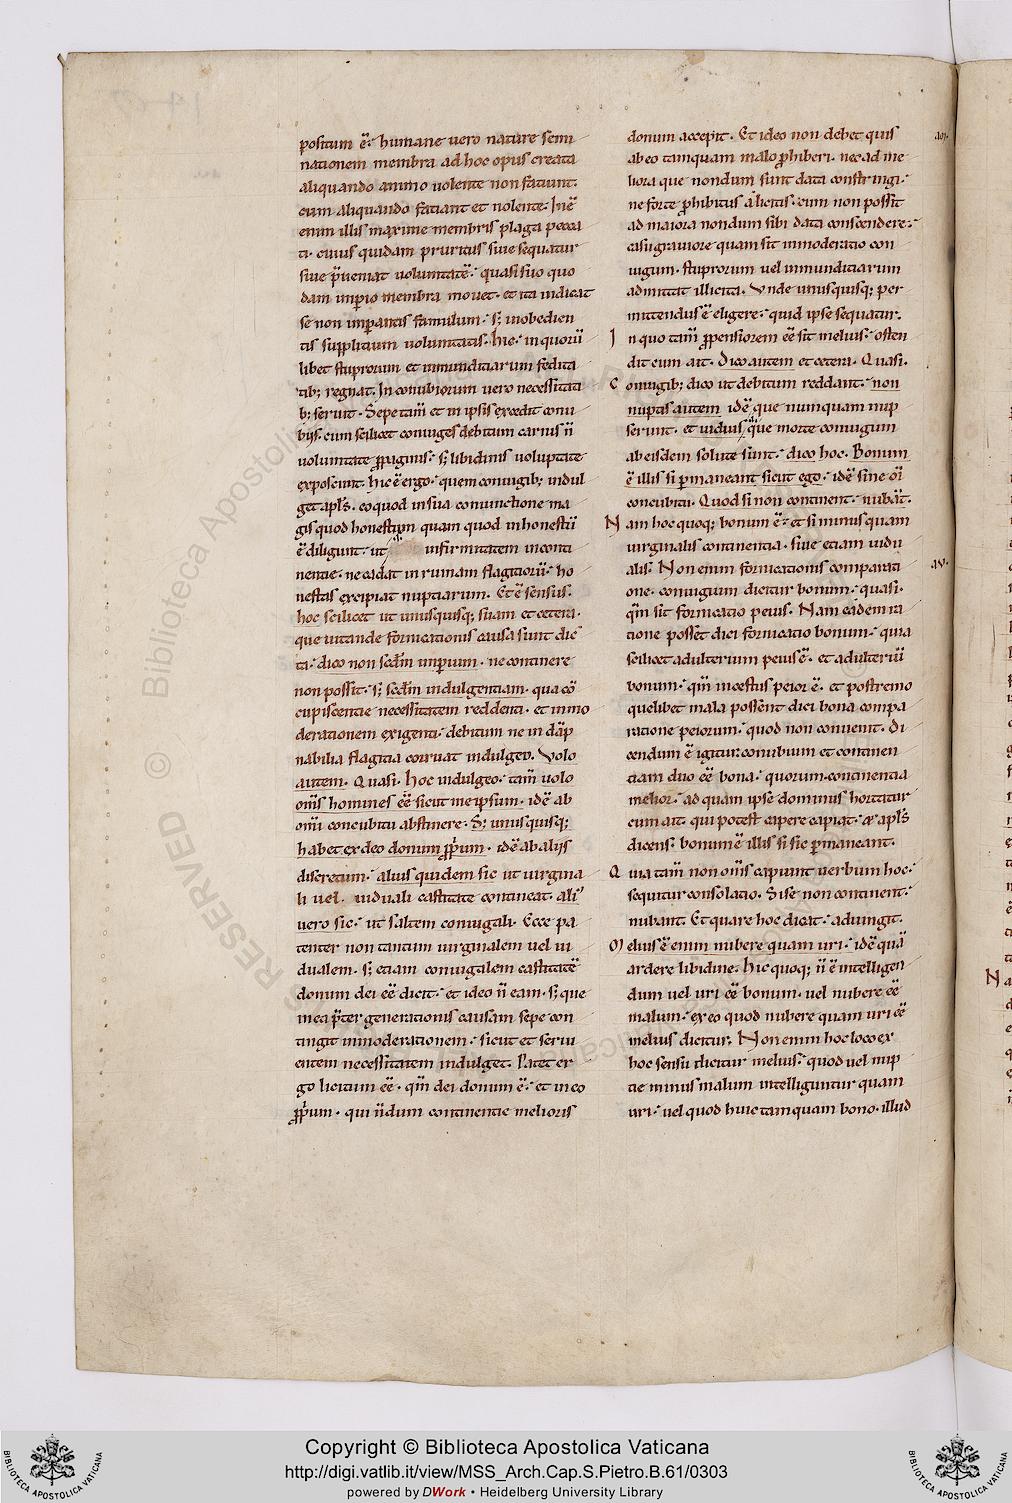 positum ē. humane uero nature semi
nationem membra ad hoc opus creata
aliquando animo uolente non faciunt.
cum aliquando faciant et nolente. Inē
enim illis maxime membris plaga pecca
ti. cuius quidam pruritus siue sequatur
siue p̄ueniat uoluntatē. quasi suo quo
dam imp̄io membra mouet. et ita indicat
se non imp̄antis famulum. s; inobedien
tis supplicium uoluntatis. hic. in quorū
libet stuprorum et inmunditiarum fedita
tib; regnat. In conubiorum uero necessitati
b; seruit. Sepe tam̄ et in ipsis excedit conu
biis. cum scilicet coniuges debitum carnis n̄
uoluntate ꝓpaginis. s; libidinis uoluptate
exposcunt. hic ē ergo. quem coniugib; indul
get apl's. eo quod in sua coniunctione ma
gis quod honestum quam quod inhonestū
ē diligunt. ut infirmitatem inconti
nentie. ne cadat in ruinam flagitiorū. ho
nestas excipiat nuptiarum. Et ē sensus.
hoc scilicet ut unusquisq; suam et cetera.
que uitande fornicationis causa sunt dic
ta. dico non scdm̄ imperium. ne continere
non possit. s; scdm̄ indulgentiam. qua cō
cupiscentie necessitatem reddenti. et inmo
derationem exigenti. debitum ne in dāp
nabilia flagitia corruat indulgeo. Volo
autem. Quasi. hoc indulgeo. tam̄ uolo
om̄s homines eē sicut me ipsum. idē ab
omī concubitu abstinere. S; unusquisq;
habet ex deo donum ꝓp̄um. idē ab aliis
discretum. alius quidem sic ut uirgina
li uel. uiduali castitate contineat. ali'
uero sic. ut saltem coniugali. Ecce pa
tenter non tantum uirginalem uel ui
dualem. s; etiam coniugalem castitatē
donum dei eē dicit. et ideo n̄ eam. s; que
in ea p̄ter generationis causam sepe con
tingit inmoderationem. sicut et serui
entem necessitatem indulget. Patet er
go licitum eē. qm̄ dei donum ē. et in eo
ꝓp̄um. qui n̄dum continentie melioris
donum accepit. Et ideo non debet quis
ab eo tamquam malo ꝓhiberi. nec ad me
liora que nondum sunt data constringi.
ne forte ꝓhibitus a licitis. cum non possit
ad maiora nondum sibi data conscendere.
casu grauiore quam sit inmoderatio con
iugum. stuprorum uel inmunditiarum
admittat illicita. Vnde unusquisq; per
mittendus ē eligere. quid ipse sequatur.
In quo tam̄ ꝓpensiorem eē sit melius. osten
dit cum ait. Dico autem et cetera. Quasi.
Coniugib; dico ut debitum reddant. non
nuptis autem idē que numquam nup
serunt. et uiduis que morte coniugum
ab eisdem solute sunt. dico hoc. Bonum
ē illis si p̄maneant sicut ego. idē sine oī
concubitu. Quod si non continent. nubāt.
Nam hoc quoq; bonum ē. et si minus quam
uirginalis continentia. siue etiam uidu
alis. Non enim fornicationis comparati
one. coniugium dicitur bonum. quasi.
qm̄ sit fornicatio peius. Nam eadem ra
tione possēt dici fornicatio bonum. quia
scilicet adulterium peius ē. et adulteriū
bonum. qm̄ incestus peior ē. et postremo
quelibet mala possent dici bona compa
ratione peiorum. quod non conuenit. Di
cendum ē igitur. conubium et continen
tiam duo eē bona. quorum continentia
melior. ad quam ipse dominus hortatur
cum ait. qui potest capere capiat. et apl's
dicens. bonum ē illis si sic p̄maneant.
Quia tam̄ non om̄s capiunt uerbum hoc.
sequitur consolatio. Si se non continent.
nubant. Et quare hoc dicat. adiungit.
Melius ē enim nubere quam uri. idē quā
ardere libidine. hic quoq; n̄ ē intelligen
dum uel uri eē bonum. uel nubere eē
malum. ex eo quod nubere quam uri eē
melius dicitur. Non enim hoc loco ex
hoc sensu dicitur melius. quod uel nup
tie minus malum intelliguntur quam
uri. uel quod huic tamquam bono. illud
Copyright © Biblioteca Apostolica Vaticana
http://digi.vatlib.it/view/MSS_Arch.Cap.S.Pietro.B.61/0303
powered by DWork • Heidelberg University Library